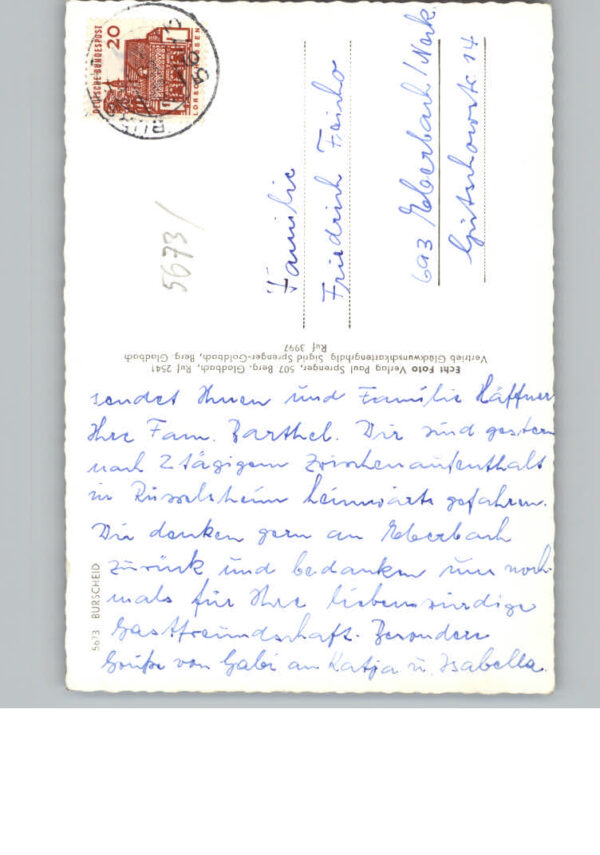 DEUTSCHE BUNDESPOST
20
LORSCH HESSEN
5673/
Familie
Friedrich
693 Eberbach/Neck.
14
Echt Foto Verlag Paul Sprenger, 507 Berg. Gladbach, Ruf 2541
Vertrieb Glückwunschkartengrhdlg. Sigrid Sprenger-Goldbach, Berg. Gladbach
Ruf 3997
5673 BURSCHEID
sendet Ihnen und Familie Häffner
Ihre Fam. Barthel. Wir sind gestern
nach 2 tägigem Zwischenaufenthalt
in Rüsselsheim heimwärts gefahren.
Wir denken gern an Eberbach
zurück und bedanken uns noch-
mals für Ihre liebenswürdige
Gastfreundschaft. Besondere
Grüße von Gabi an Katja u. Isabella.